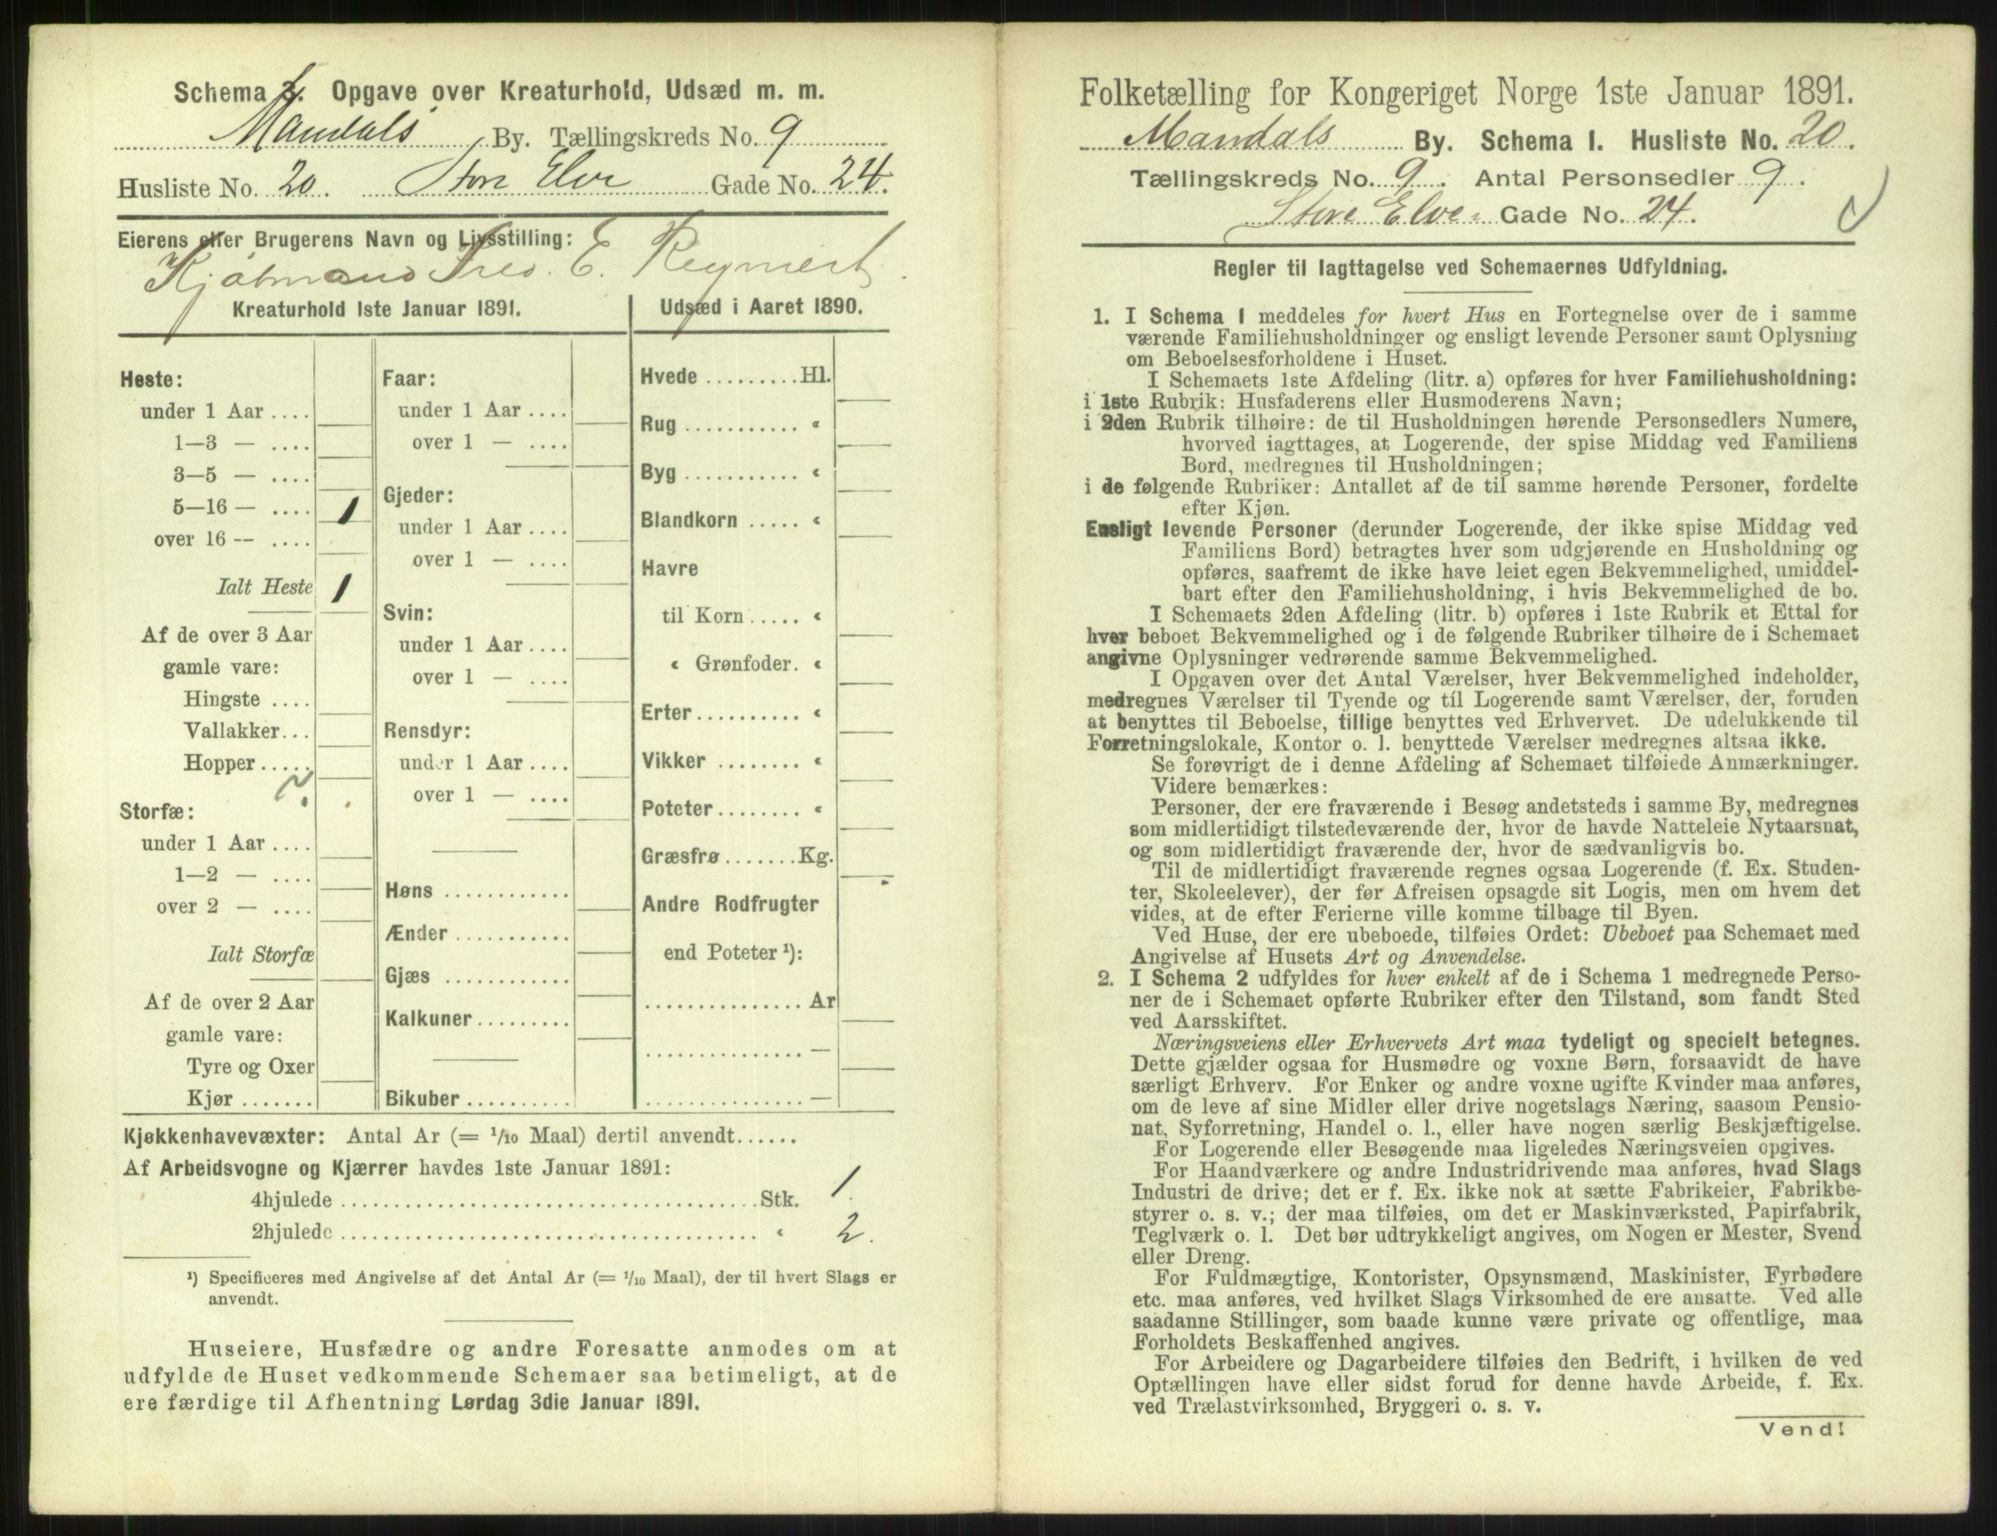 Schema 3. Opgave over Kreaturhold, Udsæd m. m.
Mandals By. Tællingskreds No. 9
Husliste No. 20. Store Elve Gade No. 24.
Eierens eller Brugerens Navn og Livsstilling:
Kjøbmand Fred. E. Reymert.
Kreaturhold 1ste Januar 1891.
Heste:
under 1 Aar ....
1—3 — ....
3—5 — ....
5—16 — .... 1
over 16 — ....
Ialt Heste 1
Af de over 3 Aar
gamle vare:
Hingste ....
Vallakker...
Hopper .....
Storfæ:
under 1 Aar ....
1—2 — ....
over 2 — ....
Ialt Storfæ
Af de over 2 Aar
gamle vare:
Tyre og Oxer
Kjør .......
Faar:
under 1 Aar ....
over 1 — ....
Gjeder:
under 1 Aar ....
over 1 — ....
Svin:
under 1 Aar ....
over 1 — ....
Rensdyr:
under 1 Aar ....
over 1 — ....
Høns ............
Ænder ...........
Gjæs ............
Kalkuner.........
Bikuber ..........
Udsæd i Aaret 1890.
Hvede .........Hl.
Rug ........... «
Byg ........... «
Blandkorn ..... «
Havre
til Korn ..... «
« Grønfoder. «
Erter.......... «
Vikker ........ «
Poteter........ «
Græsfrø .......Kg.
Andre Rodfrugter
end Poteter ¹):
............... Ar
............... —
............... —
Kjøkkenhavevæxter: Antal Ar (= 1/10 Maal) dertil anvendt......
Af Arbeidsvogne og Kjærrer havdes 1ste Januar 1891:
4hjulede ....................................Stk. 1.
2hjulede .................................... « 2.
¹) Specificeres med Angivelse af det Antal Ar (= 1/10 Maal), der til hvert Slags er
anvendt.
Huseiere, Husfædre og andre Foresatte anmodes om at
udfylde de Huset vedkommende Schemaer saa betimeligt, at de
ere færdige til Afhentning Lørdag 3die Januar 1891.
Folketælling for Kongeriget Norge 1ste Januar 1891.
Mandals By. Schema 1. Husliste No. 20.
Tællingskreds No. 9. Antal Personsedler 9.
Store Elve Gade No. 24.
Regler til Iagttagelse ved Schemaernes Udfyldning.
1. I Schema 1 meddeles for hvert Hus en Fortegnelse over de i samme
værende Familiehusholdninger og ensligt levende Personer samt Oplysning
om Beboelsesforholdene i Huset.
I Schemaets 1ste Afdeling (litr. a) opføres for hver Familiehusholdning:
i 1ste Rubrik: Husfaderens eller Husmoderens Navn;
i 2den Rubrik tilhøire: de til Husholdningen hørende Personsedlers Numere,
hvorved iagttages, at Logerende, der spise Middag ved Familiens
Bord, medregnes til Husholdningen;
i de følgende Rubriker: Antallet af de til samme hørende Personer, fordelte
efter Kjøn.
Ensligt levende Personer (derunder Logerende, der ikke spise Middag ved
Familiens Bord) betragtes hver som udgjørende en Husholdning og
opføres, saafremt de ikke have leiet egen Bekvemmelighed, umiddel-
bart efter den Familiehusholdning, i hvis Bekvemmelighed de bo.
I Schemaets 2den Afdeling (litr. b) opføres i 1ste Rubrik et Ettal for
hver beboet Bekvemmelighed og i de følgende Rubriker tilhøire de i Schemaet
angivne Oplysninger vedrørende samme Bekvemmelighed.
I Opgaven over det Antal Værelser, hver Bekvemmelighed indeholder,
medregnes Værelser til Tyende og til Logerende samt Værelser, der, foruden
at benyttes til Beboelse, tillige benyttes ved Erhvervet. De udelukkende til
Forretningslokale, Kontor o. l. benyttede Værelser medregnes altsaa ikke.
Se forøvrigt de i denne Afdeling af Schemaet tilføiede Anmærkninger.
Videre bemærkes:
Personer, der ere fraværende i Besøg andetsteds i samme By, medregnes
som midlertidigt tilstedeværende der, hvor de havde Natteleie Nytaarsnat,
og som midlertidigt fraværende der, hvor de sædvanligvis bo.
Til de midlertidigt fraværende regnes ogsaa Logerende (f. Ex. Studen-
ter, Skoleelever), der før Afreisen opsagde sit Logis, men om hvem det
vides, at de efter Ferierne ville komme tilbage til Byen.
Ved Huse, der ere ubeboede, tilføies Ordet: Ubeboet paa Schemaet med
Angivelse af Husets Art og Anvendelse.
2. I Schema 2 udfyldes for hver enkelt af de i Schema 1 medregnede Perso-
ner de i Schemaet opførte Rubriker efter den Tilstand, som fandt Sted
ved Aarsskiftet.
Næringsveiens eller Erhvervets Art maa tydeligt og specielt betegnes.
Dette gjælder ogsaa for Husmødre og voxne Børn, forsaavidt de have
særligt Erhverv. For Enker og andre voxne ugifte Kvinder maa anføres,
om de leve af sine Midler eller drive nogetslags Næring, saasom Pensio-
nat, Syforretning, Handel o. l., eller have nogen særlig Beskjæftigelse.
For Logerende eller Besøgende maa ligeledes Næringsveien opgives.
For Haandværkere og andre Industridrivende maa anføres, hvad Slags
Industri de drive; det er f. Ex. ikke nok at sætte Fabrikeier, Fabrikbe-
styrer o. s. v.; der maa tilføies, om det er Maskinværksted, Papirfabrik,
Teglværk o. l. Det bør udtrykkeligt angives, om Nogen er Mester, Svend
eller Dreng.
For Fuldmægtige, Kontorister, Opsynsmænd, Maskinister, Fyrbødere
etc. maa anføres, ved hvilket Slags Virksomhed de ere ansatte. Ved alle
saadanne Stillinger, som baade kunne være private og offentlige, maa
Forholdets Beskaffenhed angives.
For Arbeidere og Dagarbeidere tilføies den Bedrift, i hvilken de ved
Optællingen have eller sidst forud for denne havde Arbeide, f. Ex.
ved Trælastvirksomhed, Bryggeri o. s. v.
Vend!